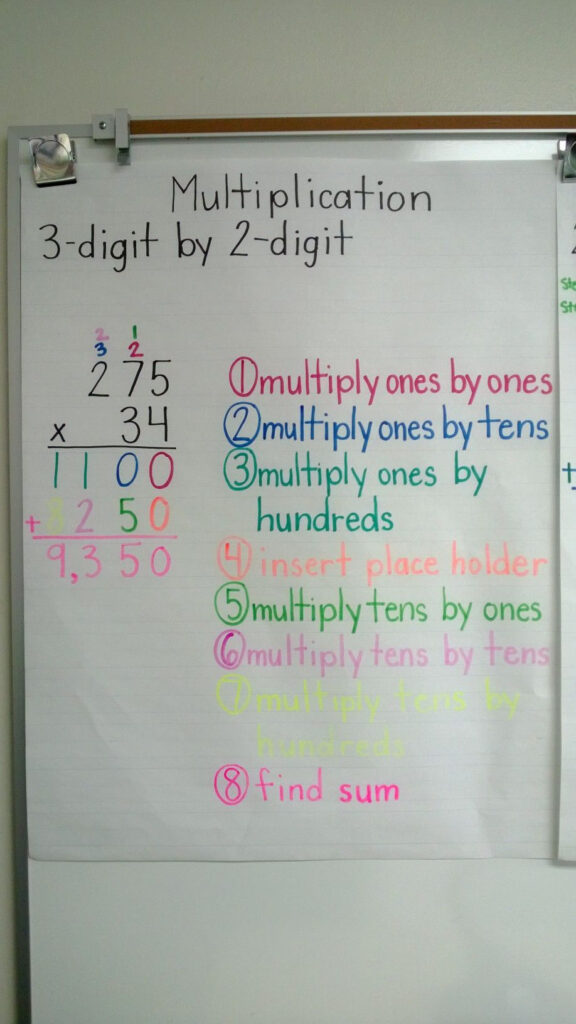 Multiplication
3-digit by 2-digit
2 1
3 2
275
x 34
1100
+ 8250
9,350
①multiply ones by ones
②multiply ones by tens
③multiply ones by
hundreds
④ insert place holder
⑤multiply tens by ones
⑥multiply tens by tens
⑦multiply tens by
hundreds
⑧find sum